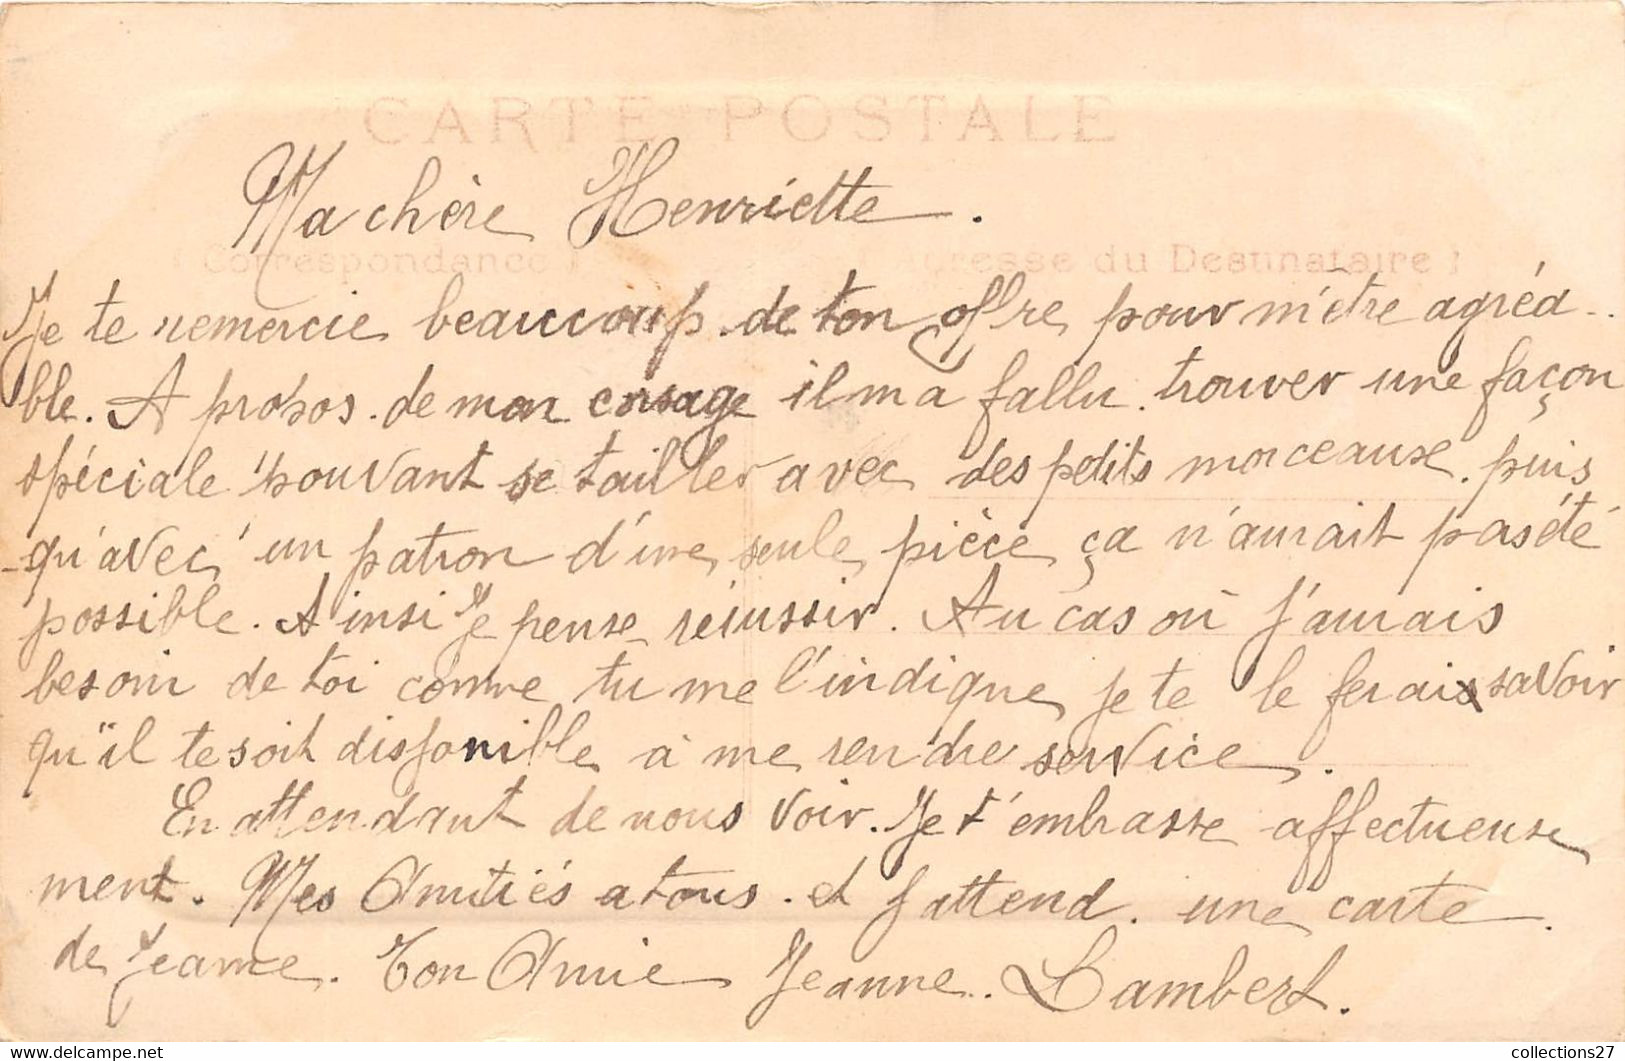 CARTE POSTALE
Ma chère Henriette.
( Correspondance ) ( Adresse du Destinataire )
Je te remercie beaucoup de ton offre pour m'être agréa-
ble. A propos de mon corsage il m a fallu trouver une façon
spéciale pouvant se tailler avec des petits morceaux. puis
-qu'avec un patron d'une seule pièce ça n'aurait pas été
possible. Ainsi Je pense réiussir. Au cas où J'aurais
besoin de toi comme tu me l'indique je te le ferais savoir
qu'il te soit disponible à me rendre service.
En attendant de nous voir. Je t'embrasse affectueuse
ment. Mes Amitiés a tous. et j'attend. une carte.
de Jeanne. Ton Amie Jeanne. Lambert.
collections27